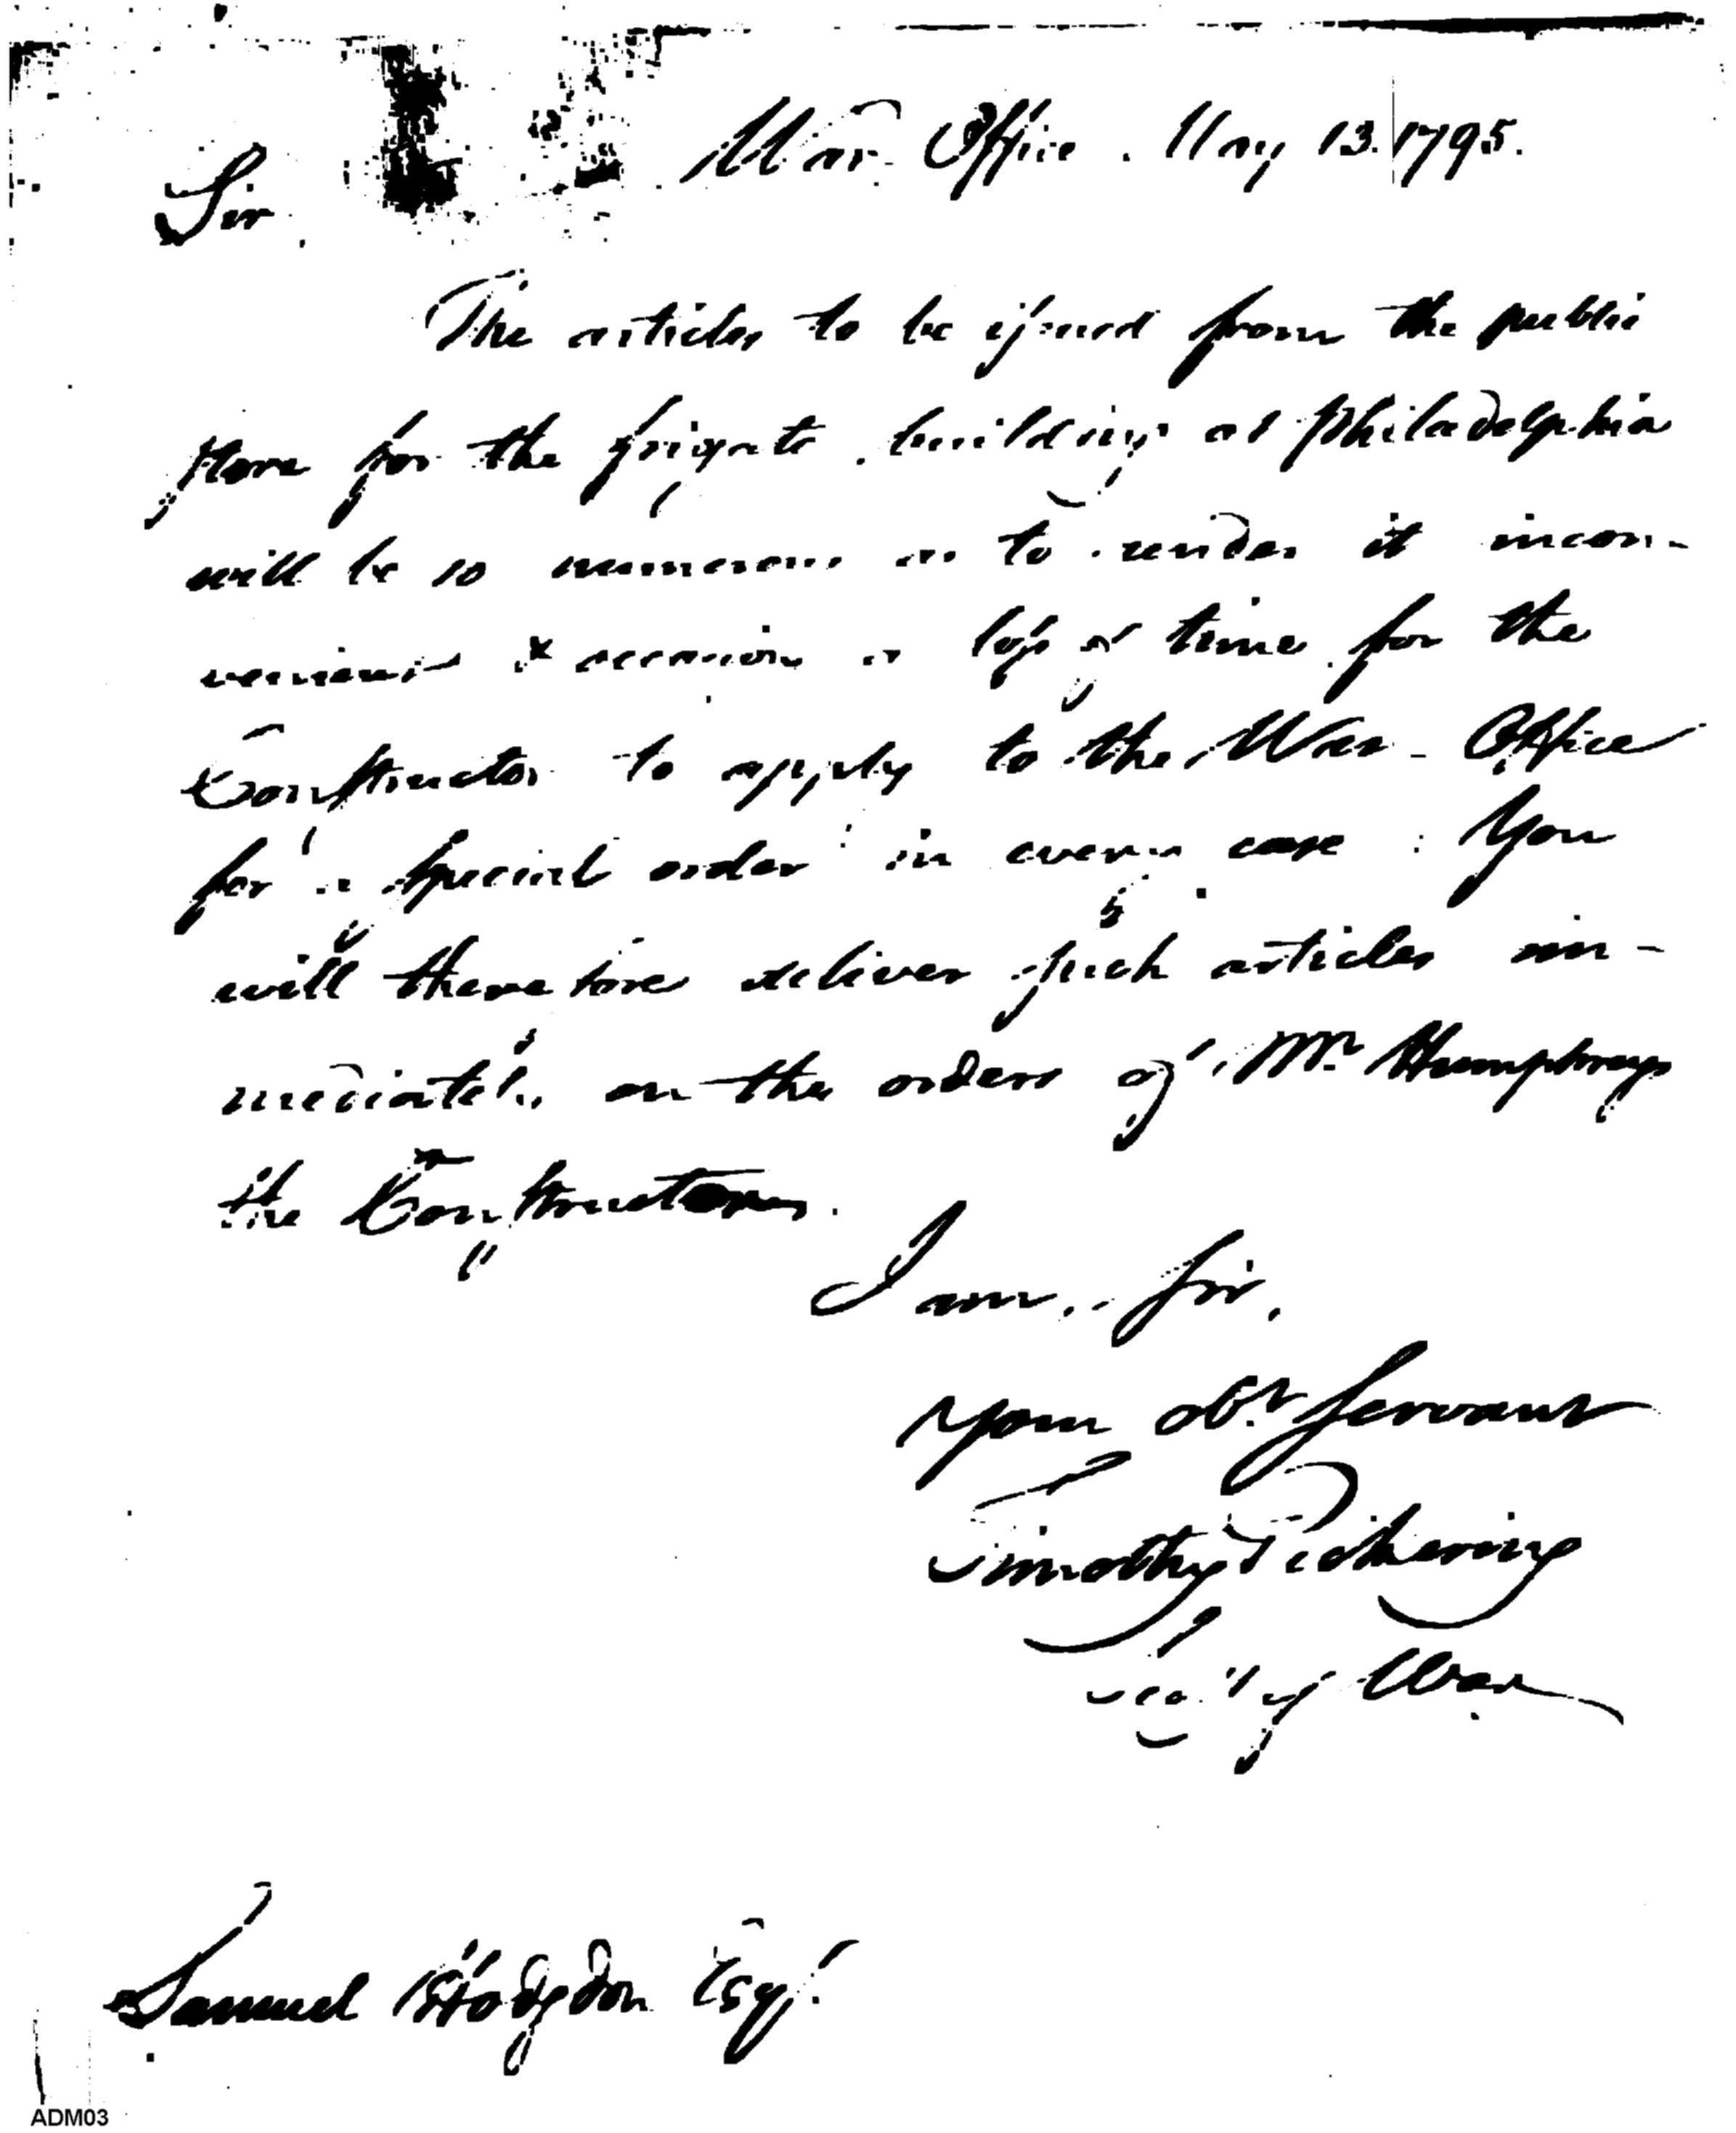 War Office. May 13. 1795.
Sir,
The articles to be issued from the public
store for the frigate building at Philadelphia
will be so numerous as to render it incon-
venient & occasion a loss of time for the
Constructor to apply to the War Office
for a special order in every case: You
will therefore deliver such articles im-
mediately on the orders of Mr. Humphreys
the Constructor.
I am, sir,
your obt. servant
Timothy Pickering
Secy of War
Samuel Hodgdon Esqr.
ADM03